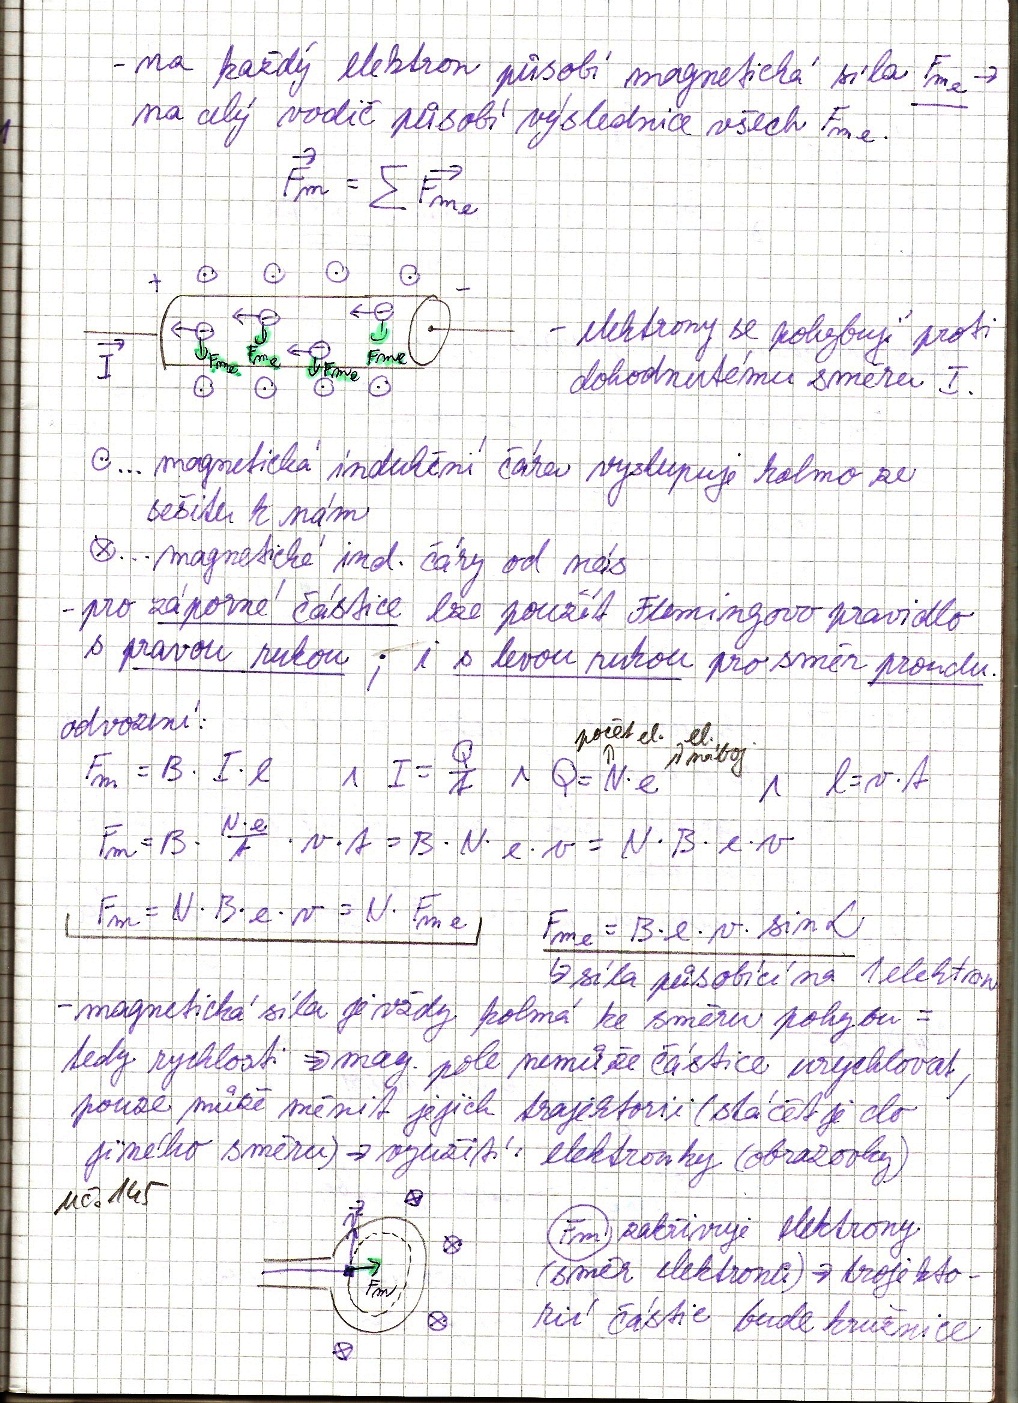 - na každý elektron působí magnetická síla Fme →
na celý vodič působí výslednice všech Fme.
Fm = Σ Fme
+ -
I Fme Fme Fme Fme
- elektrony se pohybují proti
dohodnutému směru I.
⊙... magnetická indukční čára vystupuje kolmo ze
sešitu k nám
⊗... magnetické ind. čáry od nás
- pro záporné částice lze použít Flemingovo pravidlo
s pravou rukou ; i s levou rukou pro směr proudu.
odvození:
počet el. el. náboj
Fm = B · I · l ∧ I = Q/t ∧ Q = N·e ∧ l = v·t
Fm = B · N·e/t · v·t = B · N · e · v = N · B · e · v
Fm = N · B · e · v = N · Fme
Fme = B · e · v · sin α
↳ síla působící na 1 elektron
- magnetická síla je vždy kolmá ke směru pohybu =
tedy rychlosti ⇒ mag. pole nemůže částice urychlovat,
pouze může měnit jejich trajektorii (stáčet je do
jiného směru) → využití: elektronky (obrazovky)
uč. 145
v
Fm
Fm zakřivuje elektrony
(směr elektronů) → trajekto-
rií částic bude kružnice